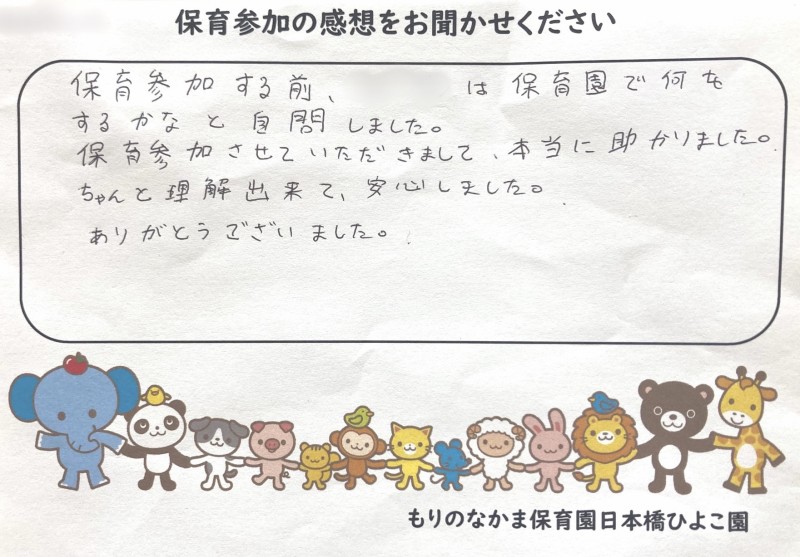 保育参加の感想をお聞かせください
保育参加する前、 は保育園で何を
するかなと自問しました。
保育参加させていただきまして、本当に助かりました。
ちゃんと理解出来て、安心しました。
ありがとうございました。
もりのなかま保育園日本橋ひよこ園